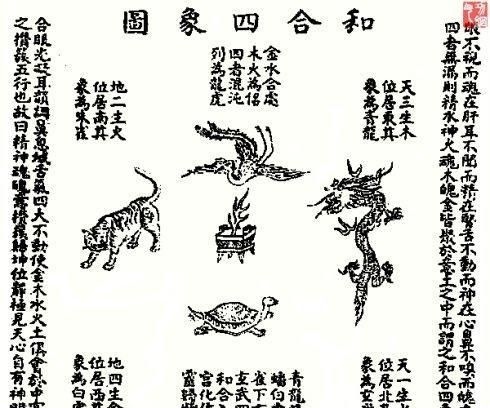 和合四象圖
眼不視而魂在肝耳不聞而精在腎舌不動而神在心鼻不嗅而魄
四者無漏則精水神火魂木魄金皆聚於意土之中而謂之和合四
天三生木
位居東其
象為青龍
金水合處
木火為侶
四者混沌
列為龍虎
地二生火
位居南其
象為朱雀
天一生
位居北
象為玄
青龍
蟠白
雀下
玄武四
和合
宮化作
靈
地四生金
位居西
象為白
合眼光凝耳韻調鼻息緘舌氣四大不動使金木水火土俱會於中
之攢簇五行也故曰精神魂魄意攢簇歸坤位靜極見天心自有神明